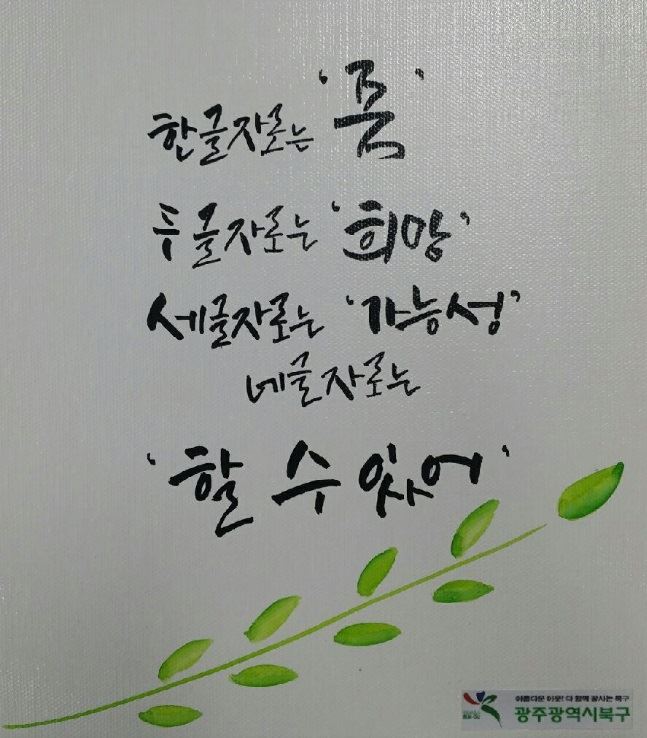 한글자로는 '꿈'
두글자로는 '희망'
세글자로는 '가능성'
네글자로는
'할 수 있어'
아름다운 이웃! 다 함께 잘사는 북구
광주광역시북구